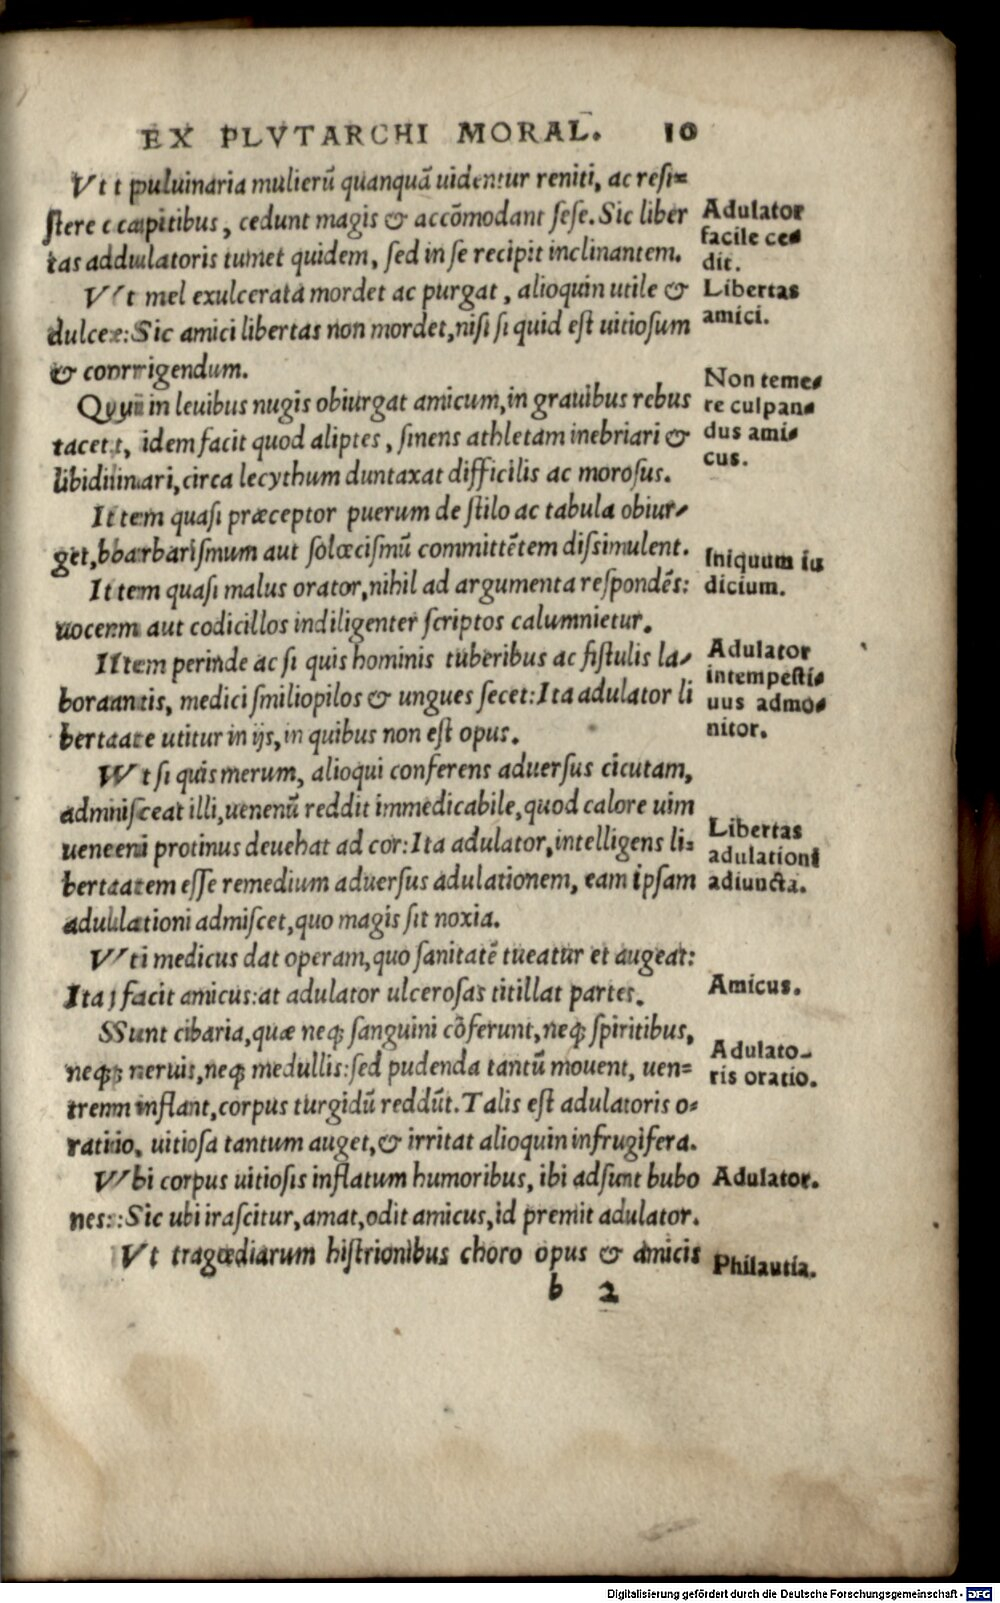 EX PLVTARCHI MORAL. 10
Vt puluinaria mulierū quanquā uidentur reniti, ac resi=
stere capitibus, cedunt magis & accōmodant sese. Sic liber
tas adulatoris tumet quidem, sed in se recipit inclinantem.
Adulator
facile ce=
dit.
Vt mel exulcerata mordet ac purgat, alioquin utile &
dulce: Sic amici libertas non mordet, nisi si quid est uitiosum
& corrigendum.
Libertas
amici.
Qui in leuibus nugis obiurgat amicum, in grauibus rebus
tacet, idem facit quod aliptes, sinens athletam inebriari &
libidinari, circa lecythum duntaxat difficilis ac morosus.
Non teme=
re culpan=
dus ami=
cus.
Item quasi præceptor puerum de stilo ac tabula obiur=
get, barbarismum aut solœcismū committētem dissimulent.
Item quasi malus orator, nihil ad argumenta respondēs:
uocem aut codicillos indiligenter scriptos calumnietur.
Iniquum iu
dicium.
Item perinde ac si quis hominis tuberibus ac fistulis la=
borantis, medici smiliopilos & ungues secet: Ita adulator li
bertate utitur in ijs, in quibus non est opus.
Adulator
intempesti=
uus admo=
nitor.
Vt si quis merum, alioqui conferens aduersus cicutam,
admisceat illi, uenenū reddit immedicabile, quod calore uim
ueneni protinus deuehat ad cor: Ita adulator, intelligens li=
bertatem esse remedium aduersus adulationem, eam ipsam
adulationi admiscet, quo magis sit noxia.
Libertas
adulationi
adiuncta.
Vti medicus dat operam, quo sanitatē tueatur et augeat:
Ita facit amicus: at adulator ulcerosas titillat partes.
Amicus.
Sunt cibaria, quæ neq; sanguini cōferunt, neq; spiritibus,
neq; neruis, neq; medullis: sed pudenda tantū mouent, uen=
trem inflant, corpus turgidū reddūt. Talis est adulatoris o=
ratio, uitiosa tantum auget, & irritat alioquin infrugifera.
Adulato=
ris oratio.
Vbi corpus uitiosis inflatum humoribus, ibi adsunt bubo
nes: Sic ubi irascitur, amat, odit amicus, id premit adulator.
Adulator.
Vt tragœdiarum histrionibus choro opus & amicis
Philautia.
b 2
Digitalisierung gefördert durch die Deutsche Forschungsgemeinschaft - DFG